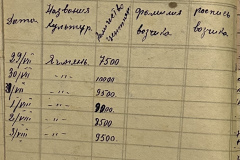 Дата Названия культур. Количество фамилия возчика роспись возчика
29/VII Ячмень 7500
30/VII -"- 10000
31/VII -"- 9500
1/VIII -"-
2/VIII -"- 8500
3/VIII -"- 9500